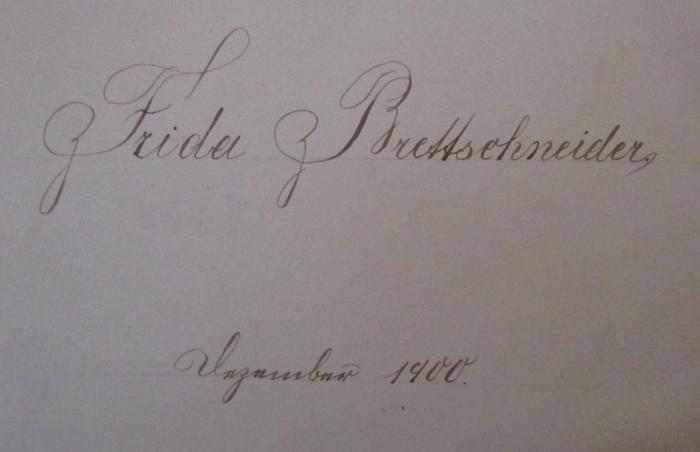 Frida Brettschneider,
Dezember 1900.